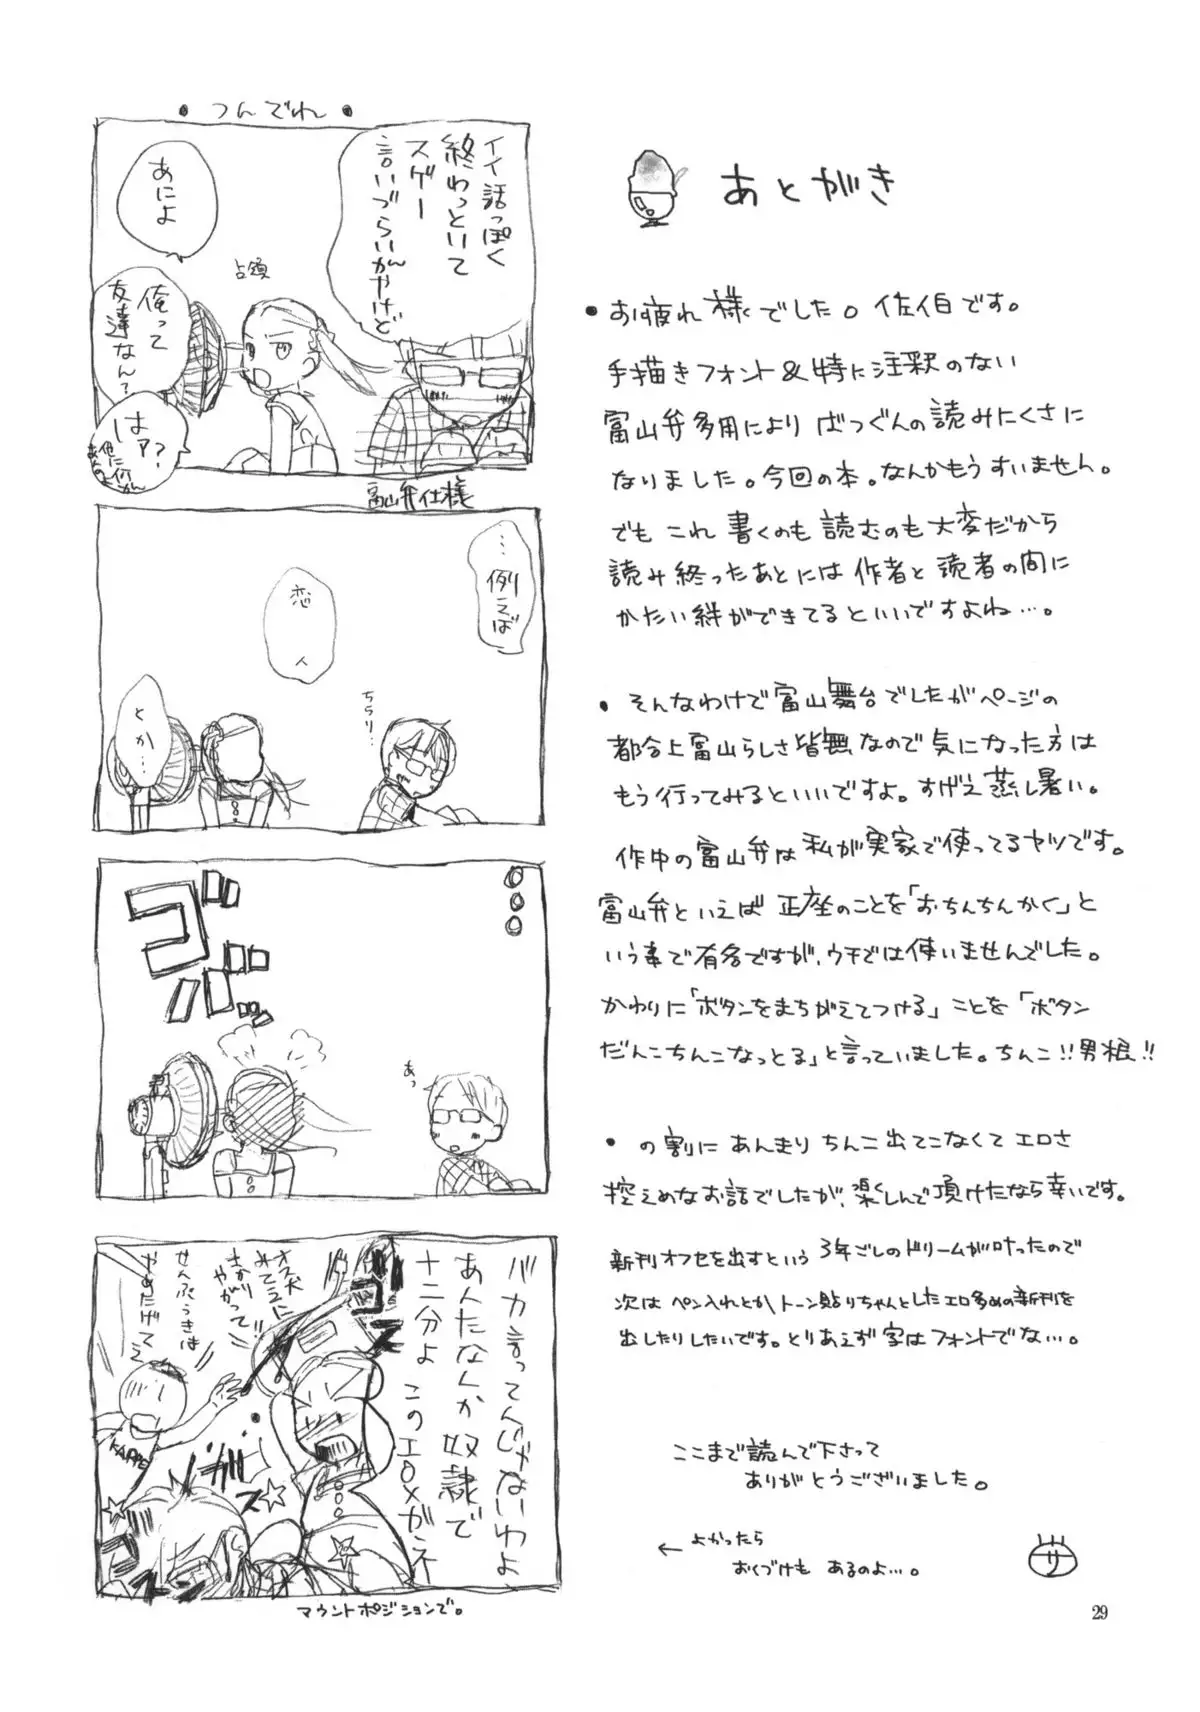 あとがき
・お疲れ様でした。佐伯です。
手描きフォント＆特に注釈のない
富山弁多用によりばつぐんの読みにくさに
なりました。今回の本。なんかもうすいません。
でもこれ書くのも読むのも大変だから
読み終ったあとには作者と読者の間に
かたい絆ができてるといいですよね…。
・そんなわけで富山舞台でしたがページの
都合上富山らしさ皆無なので気になった方は
もう行ってみるといいですよ。すげえ蒸し暑い。
作中の富山弁は私が実家で使ってるヤツです。
富山弁といえば正座のことを「おちんちんかく」と
いう事で有名ですが、ウチでは使いませんでした。
かわりに「ボタンをまちがえてつける」ことを「ボタン
だんこちんこなっとる」と言っていました。ちんこ!!男根!!
・の割にあんまりちんこ出てこなくてエロさ
控えめなお話でしたが、楽しんで頂けたなら幸いです。
新刊オフセを出すという3年ごしのドリームが叶ったので
次はペン入れとかトーン貼りちゃんとしたエロ多めの新刊を
出したりしたいです。とりあえず字はフォントでな…。
ここまで読んで下さって
ありがとうございました。
← よかったら
おくづけもあるのよ…。
サ
・つんでれ・
イイ話っぽく
終わっといて
スゲー
言いづらいがんやけど
あによ
占領
俺って
友達なん？
はァ？
他に何か
あんの
富山弁仕様
…例えば
恋
人
ちらり…
とか…
。。。
ゴ
バ
あっ
バカ言ってんじゃないわよ
あんたなんか奴隷で
十二分よ このエロメガネ
オス犬
みてェに
さかり
やがって!!
せんぷうきは
やめたげてェ
KAPPE
マウントポジションで。
29